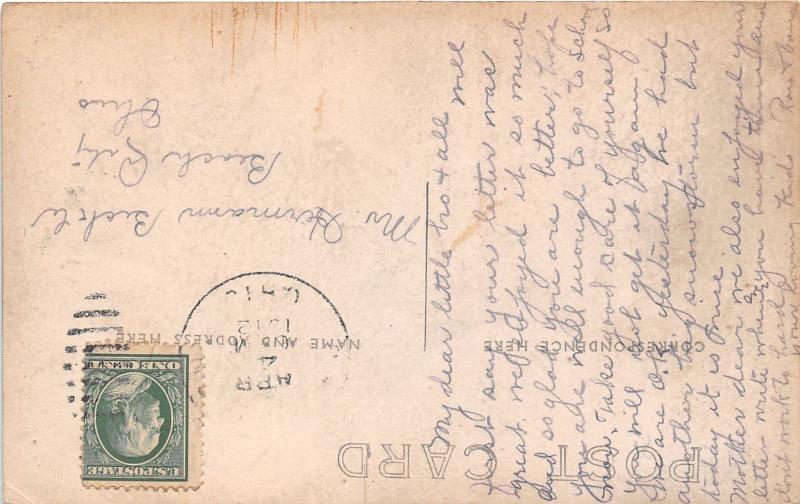 POST CARD
CORRESPONDENCE HERE
NAME AND ADDRESS HERE
U.S. POSTAGE
ONE CENT
APR
4
1912
OHIO
Mr Hermann
Beach City
Ohio
My dear little bro & all will
first say your letter was
great we enjoyed it so much
and so glad you are better, hope
you are well enough to go to school
now. Take good care of yourself so
you will not get it again.
We are O.K. Yesterday we had
another big snowstorm but
today it is nice
Mother dear we also enjoyed your
letter write when you have time and
don't work to hard
your loving kids